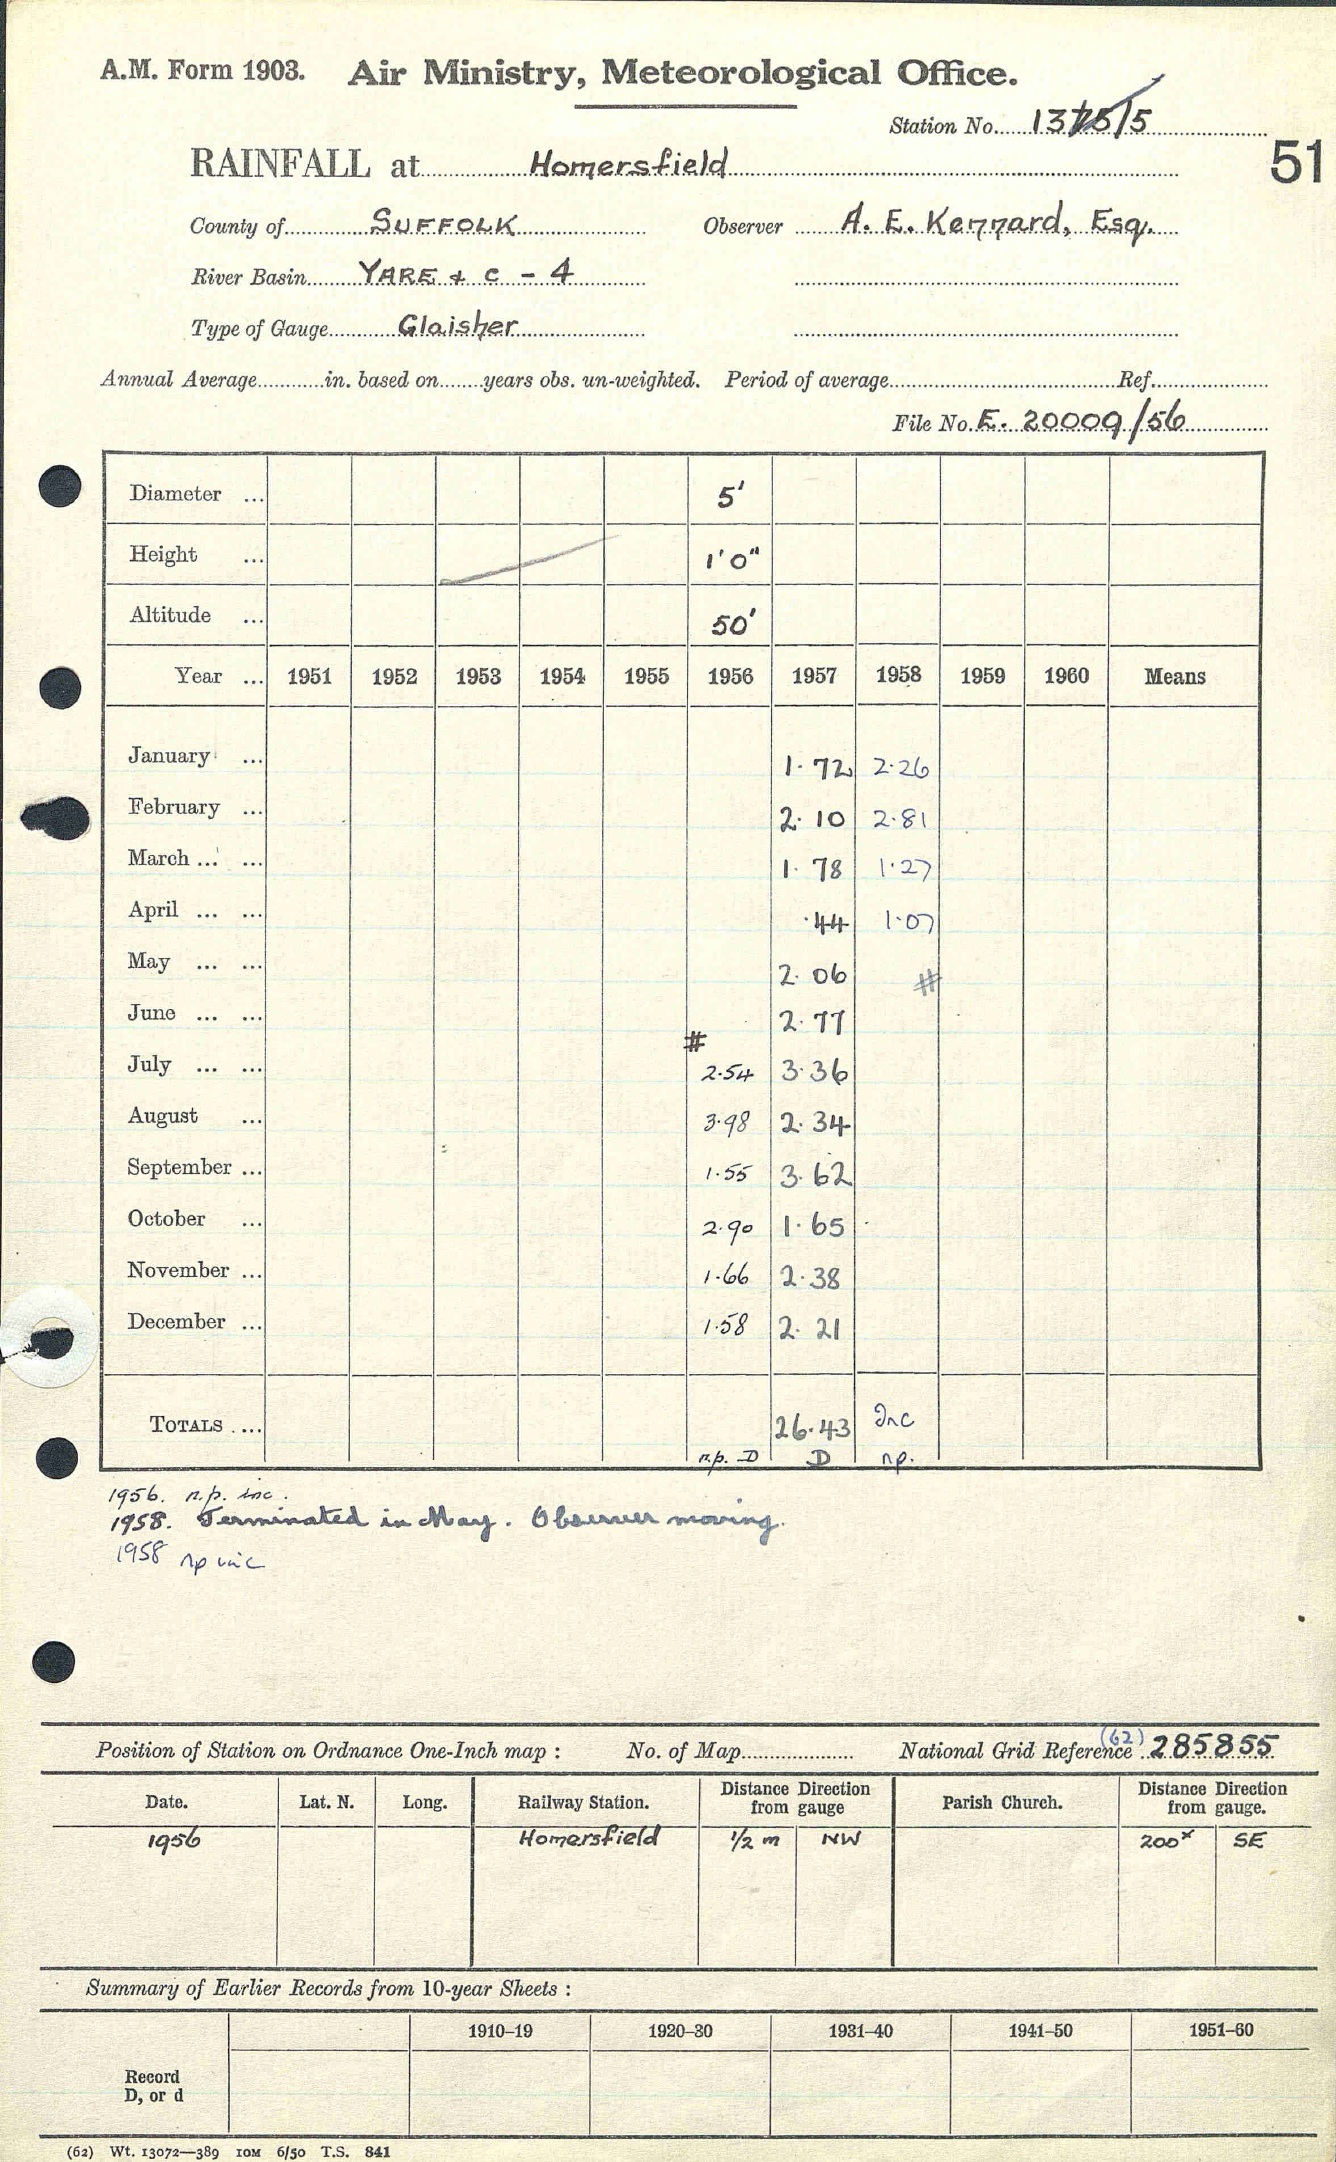 A.M. Form 1903. Air Ministry, Meteorological Office.
Station No. /5
51
RAINFALL at Homersfield
County of SUFFOLK Observer A. E. Kennard, Esq.
River Basin YARE & C - 4
Type of Gauge Glaisher
Annual Average in. based on years obs. un-weighted. Period of average Ref.
File No. E. 20009/56
Diameter ... 5'
Height ... 1'0"
Altitude ... 50'
Year ... 1951 1952 1953 1954 1955 1956 1957 1958 1959 1960 Means
January ... 1.72 2.26
February ... 2.10 2.81
March ... ... 1.78 1.27
April ... ... .44 1.07
May ... ... 2.06 #
June ... ... 2.77
#
July ... ... 2.54 3.36
August ... 3.98 2.34
September ... 1.55 3.62
October ... 2.90 1.65
November ... 1.66 2.38
December ... 1.58 2.21
TOTALS ... 26.43 Inc
n.p. D D np.
1956. n.p. inc.
1958. Terminated in May. Observer moving.
1958 np inc
Position of Station on Ordnance One-Inch map : No. of Map National Grid Reference (62) 285855
Date. Lat. N. Long. Railway Station. Distance Direction from gauge Parish Church. Distance Direction from gauge.
1956 Homersfield 1/2 m NW 200x SE
Summary of Earlier Records from 10-year Sheets :
1910–19 1920–30 1931–40 1941–50 1951–60
Record
D, or d
(62) Wt. 13072—389 10M 6/50 T.S. 841